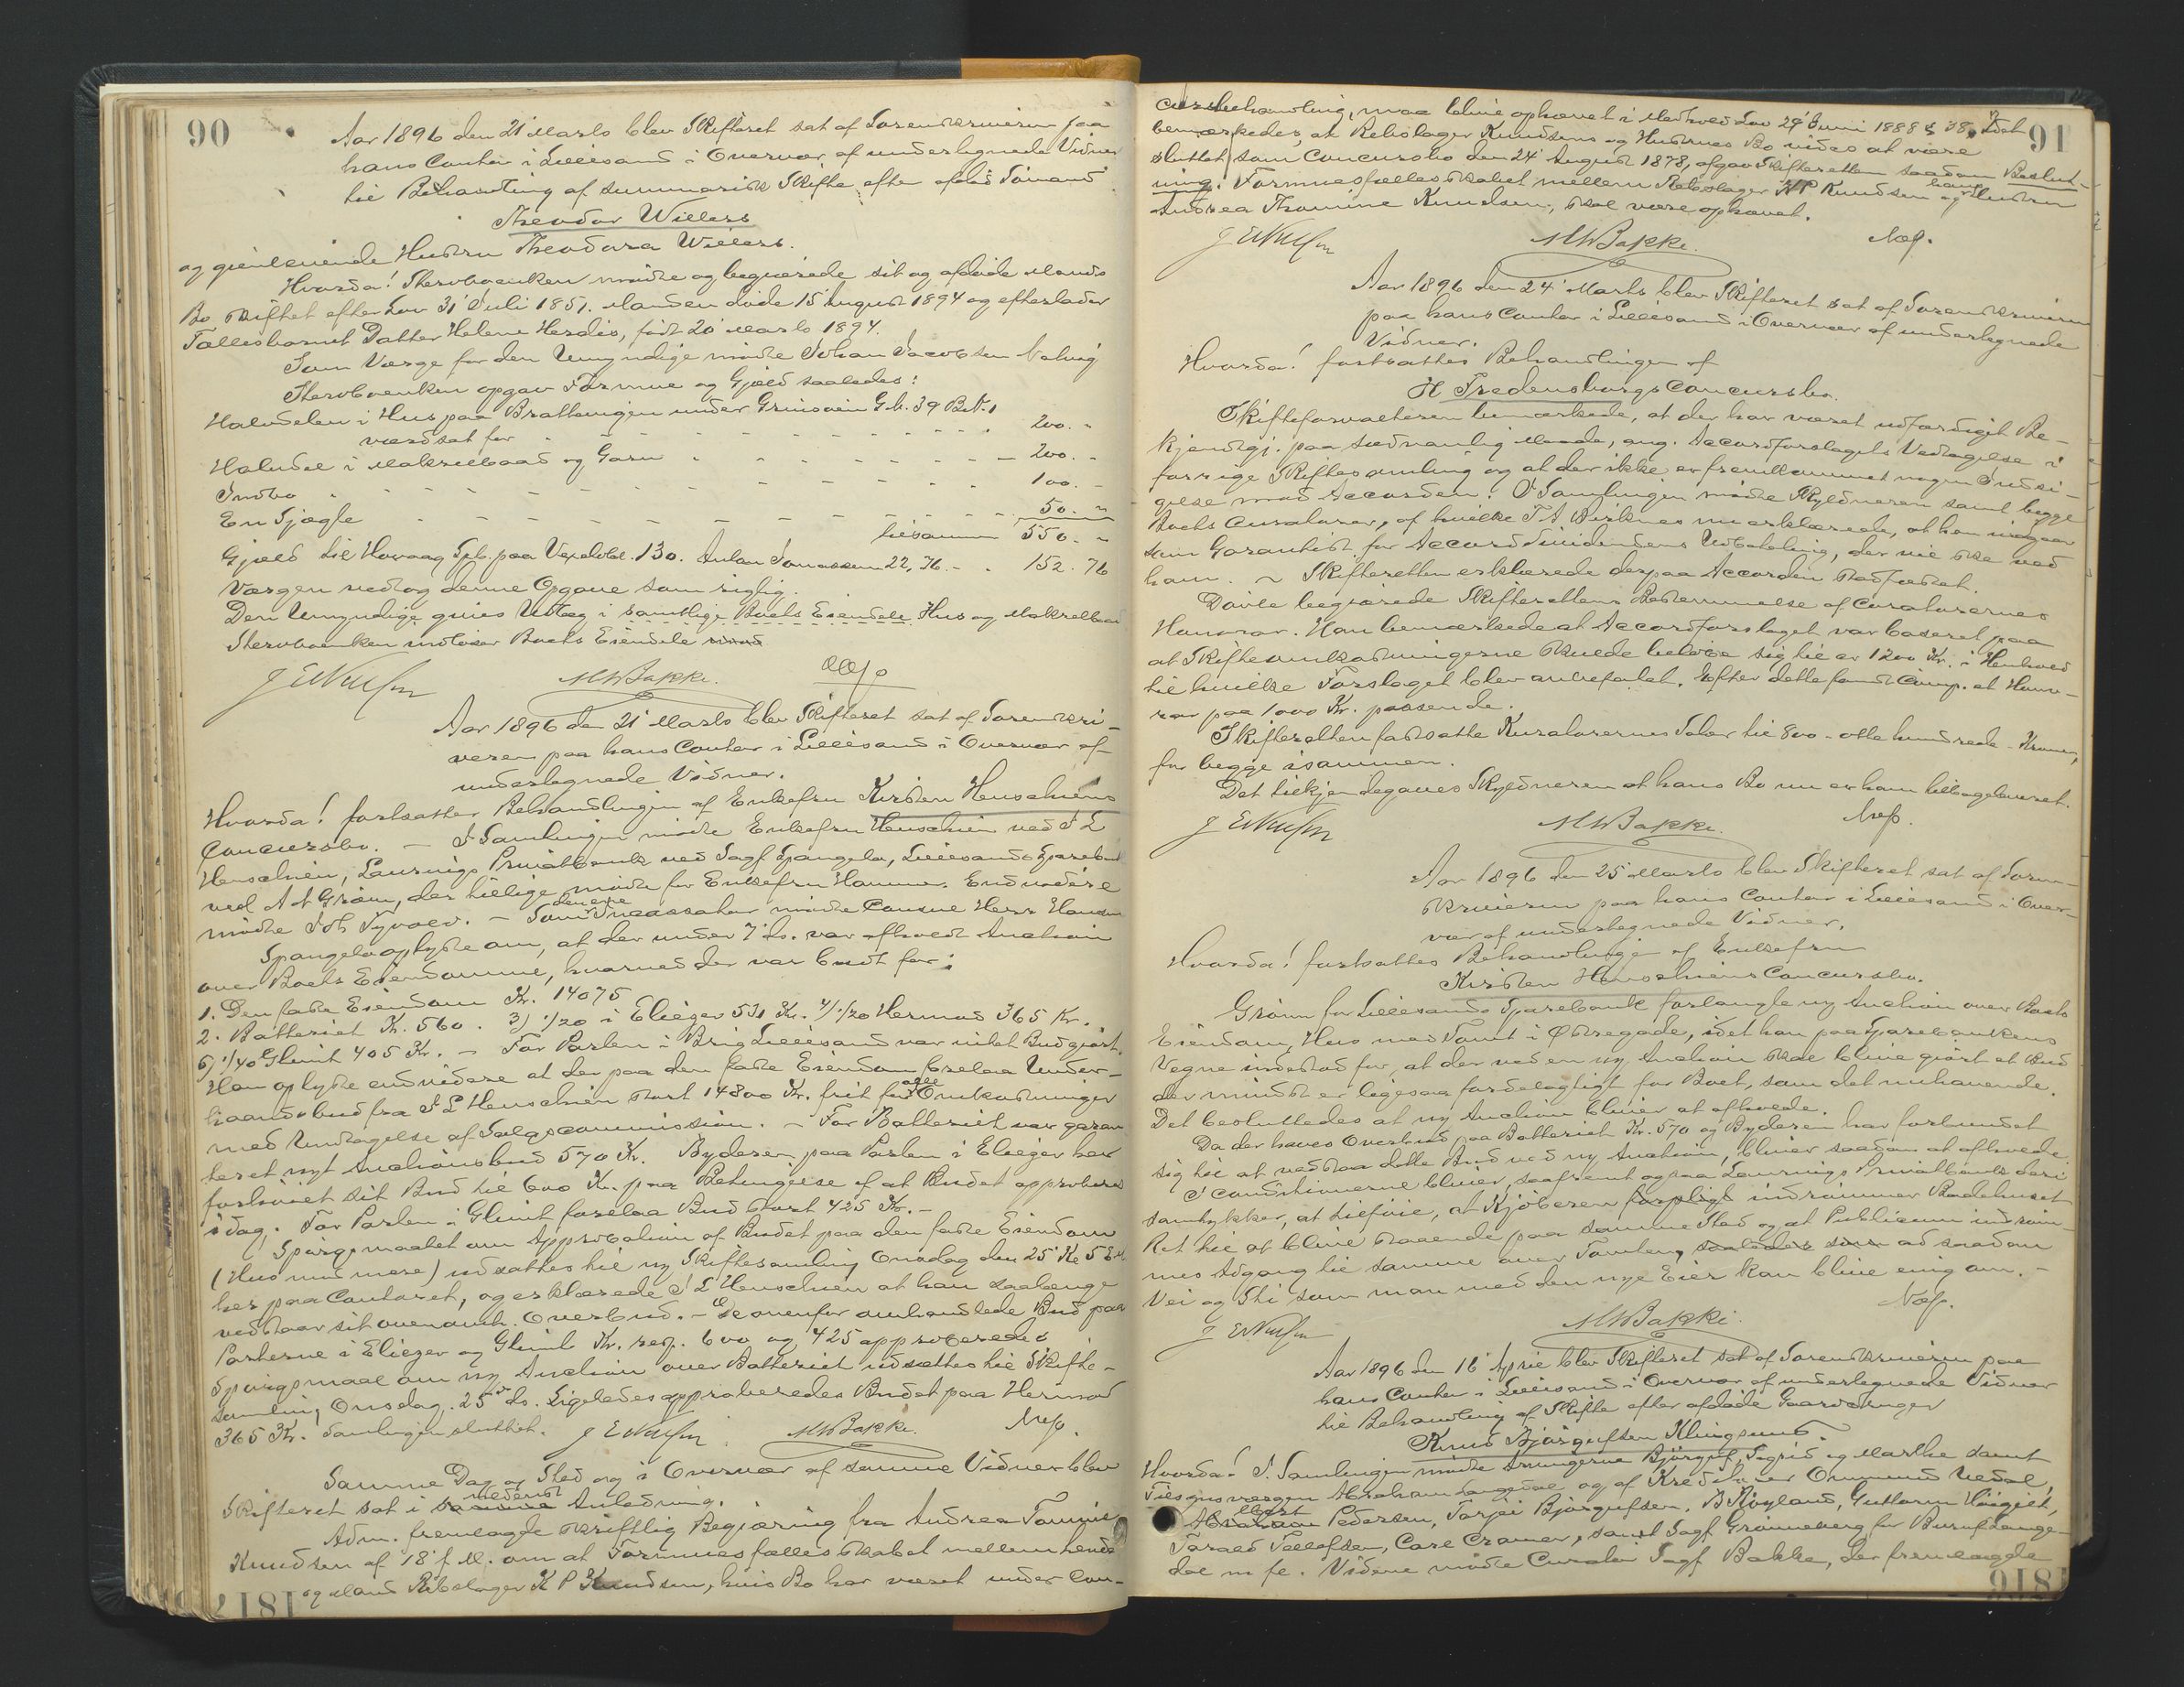 90
Aar 1896 den 21' Marts blev Skifteret sat af Sorenskriveren paa
hans Contor i Lillesand i Overvær af undertegnede Vidner
til Behandling af summarisk Skifte efter afdøde Sømand
Theodor Willers
og gjenlevende Hustru Theodora Willers.
Hvorda! Stervboenken mødte og begjærede sit og afdøde Mands
Bo skiftet efter Lov 31' Juli 1851. Manden døde 15' August 1894 og efterlader
Fællesbarnet Datter Helene Herdis, født 20' Marts 1894.
Som Værge for den Umyndige mødte Johan Jacobsen
Stervboenken opgav Formue og Gjæld saaledes:
Halvdelen i Hus paa Brattningen under Grimsøin G.b. 39 B.N. 1
værdsat for - 200. -
Halvdel i Makrelbaad og Garn - 200. -
Indbo - 100. -
En Sjægte - 50. -
tilsammen 550. -
Gjæld til Høvaag Spb. paa Vexelobl. 130. Anton Tomassen 22,76. - 152. 76
Værgen vedtog denne Opgave som rigtig.
Den Umyndige gives Udlæg i samtlige Boets Eiendele Hus og Makrelbaad
Stervboenken indløser Boets Eiendele
M W Bakke.
Aar 1896 den 21' Marts blev Skifteret sat af Sorenskri-
veren paa hans Contor i Lillesand i Overvær af
undertegnede Vidner.
Hvorda! fortsattes Behandlingen af Enkefru Kirsten Henschiens
Concursbo. - I Samlingen mødte Enkefru Henschien ved J L
Henschien, Laurvigs Privatbank ved Sagf Spangelo, Lillesands Sparebank
ved A A Grøm, der tillige mødte for Enkefru Hammer. Endvidere
mødte Joh Tyvold. - Som den ene Incassator mødte Consul Herr Hansen
Spangelo oplyste om, at der under 7' ds. var afholdt Auction
over Boets Eiendomme, hvorved der var budt for:
1. Den faste Eiendom Kr. 14075
2. Batteriet Kr. 560. 3) 1/20 i Eliezer 531 Kr. 4) 1/20 Hermod 365 Kr.
5) 1/40 Glimt 405 Kr. - For Parten i Brig Lillesand var intet Bud gjort.
Han oplyste endvidere at der paa den faste Eiendom forelaa Under-
haandsbud fra J L Henschien stort 14800 Kr. frit for alle Omkostninger
med Undtagelse af Salgscommission. - For Batteriet var garan-
teret nyt Auctionsbud 570 Kr. Byderen paa Parten i Eliezer har
forhøiet sit Bud til 600 Kr. paa Betingelse af at Budet approberes
i dag. For Parten i Glimt forelaa Bud stort 425 Kr. -
Spørgsmaalet om Approbation af Budet paa den faste Eiendom
(Hus med mere) udsattes til ny Skiftesamling Onsdag den 25' Kl 5 Em.
her paa Contoret, og erklærede J L Henschien at han saalænge
vedstaar sit ovenomh. Overbud. - De ovenfor omhandlede Bud paa
Parterne i Eliezer og Glimt Kr. resp. 600 og 425 approberedes
Spørgsmaal om ny Auction over Batteriet udsattes til Skifte-
samling Onsdag 25' ds. Ligeledes approberedes Budet paa Hermod
365 Kr. Samlingen sluttet.
M W Bakke.
Samme Dag og Sted og i Overvær af samme Vidner blev
Skifteret sat i nedenst Anledning.
Adm. fremlagde skriftlig Begjæring fra Andrea Tomine
Knudsen af 18' f. M. om at Formuesfællesskabet mellem hende
og Mand Rebslager K P Knudsen, hvis Bo har været under Con-
91
cursbehandling, maa blive ophævet i Medhold Lov 29' Juni 1888 § 38, idet
bemærkedes, at Rebslager Knudsens og Hustrues Bo vides at være
sluttet som Concursbo den 24' August 1878, afgav Skifteretten saadan Beslut-
ning: Formuesfællesskabet mellem Rebslager K P Knudsen og hans Hustru
Andrea Thomine Knudsen, skal være ophævet.
M W Bakke.
Aar 1896 den 24' Marts blev Skifteret sat af Sorenskriveren
paa hans Contor i Lillesand i Overvær af undertegnede
Vidner.
Hvorda! fortsattes Behandlingen af
H Fredensborgs Concursbo.
Skifteforvalteren bemærkede, at der har været udfærdiget Be-
kjendtgj. paa sædvanlig Maade, ang. Accordforslagets Vedtagelse i
forrige Skiftesamling og at der ikke er fremkommet nogen Indsi-
gelse mod Accorden. I Samlingen mødte Skyldneren samt begge
Boets Curatorer, af hvilke T A Birknes nu erklærede, at han indgaar
som Garantist for Accorddividendens Udbetaling, der vil ske ved
ham. - Skifteretten erklærede derpaa Accorden stadfæstet.
Døvle begjærede Skifterettens Bestemmelse af Curatorernes
Honorar. Han bemærkede at Accordforslaget var baseret paa
at Skifteomkostningerne skulde beløbe sig til ca 1200 Kr. i Henhold
til hvilke Forslaget blev anbefalet. Efter dette fandt Comp. et Hono-
rar paa 1000 Kr. passende.
Skifteretten fastsatte Kuratorernes Salær til 800 - otte hundrede - Kroner,
for begge isammen.
Det tilkjendegaves Skyldneren at hans Bo nu er ham tilbageleveret.
M W Bakke.
Aar 1896 den 25' Marts blev Skifteret sat af Soren-
skriveren paa hans Contor i Lillesand i Over-
vær af undertegnede Vidner.
Hvorda! fortsattes Behandlingen af Enkefru
Kirsten Henschiens Concursbo.
Grøm for Lillesands Sparebank forlangte ny Auction over Boets
Eiendom, Hus med Tomt i Østregade, idet han paa Sparebankens
Vegne indestod for, at der ved en ny Auction skal blive gjort et Bud
der mindst er ligesaa fordelagtigt for Boet, som det nuhavende.
Det besluttedes at ny Auction bliver at afholde.
Da der haves Overbud paa Batteriet Kr. 570 og Byderen har forbundet
sig til at vedstaa dette Bud ved ny Auction, bliver saadan at afholde
I Conditionerne bliver, saafremt ogsaa Laurvigs Privatbank deri
samtykker, at tilføie, at Kjøberen forpligt indrømmer Badehuset
Ret til at blive staaende paa samme Sted og at Publicum indrøm-
mes Adgang til samme over Tomten, saaledes som ad saadan
Vei og Sti som man med den nye Eier kan blive enig om. -
M W Bakke.
Aar 1896 den 16' April blev Skifteret sat af Sorenskriveren paa
hans Contor i Lillesand i Overvær af undertegnede Vidner
til Behandling af Skifte efter afdøde Gaardbruger
Knud Bjørgufsen Klingsund.
Hvorda! I Samlingen mødte Arvingerne Bjørguf, Sigrid og Marthe samt
Tilsynsværgen Abraham Langedal og af Kreditorer Ommund Uedal,
Albert Pedersen, Torjei Bjørgufsen, B Røyland, Guttorm Høigilt,
Tarald Tellefsen, Carl Cramer, samt Sagf Grønneberg for Buruf Lange-
dal m fl. Videre mødte Curator Sagf Bakke, der fremlagde